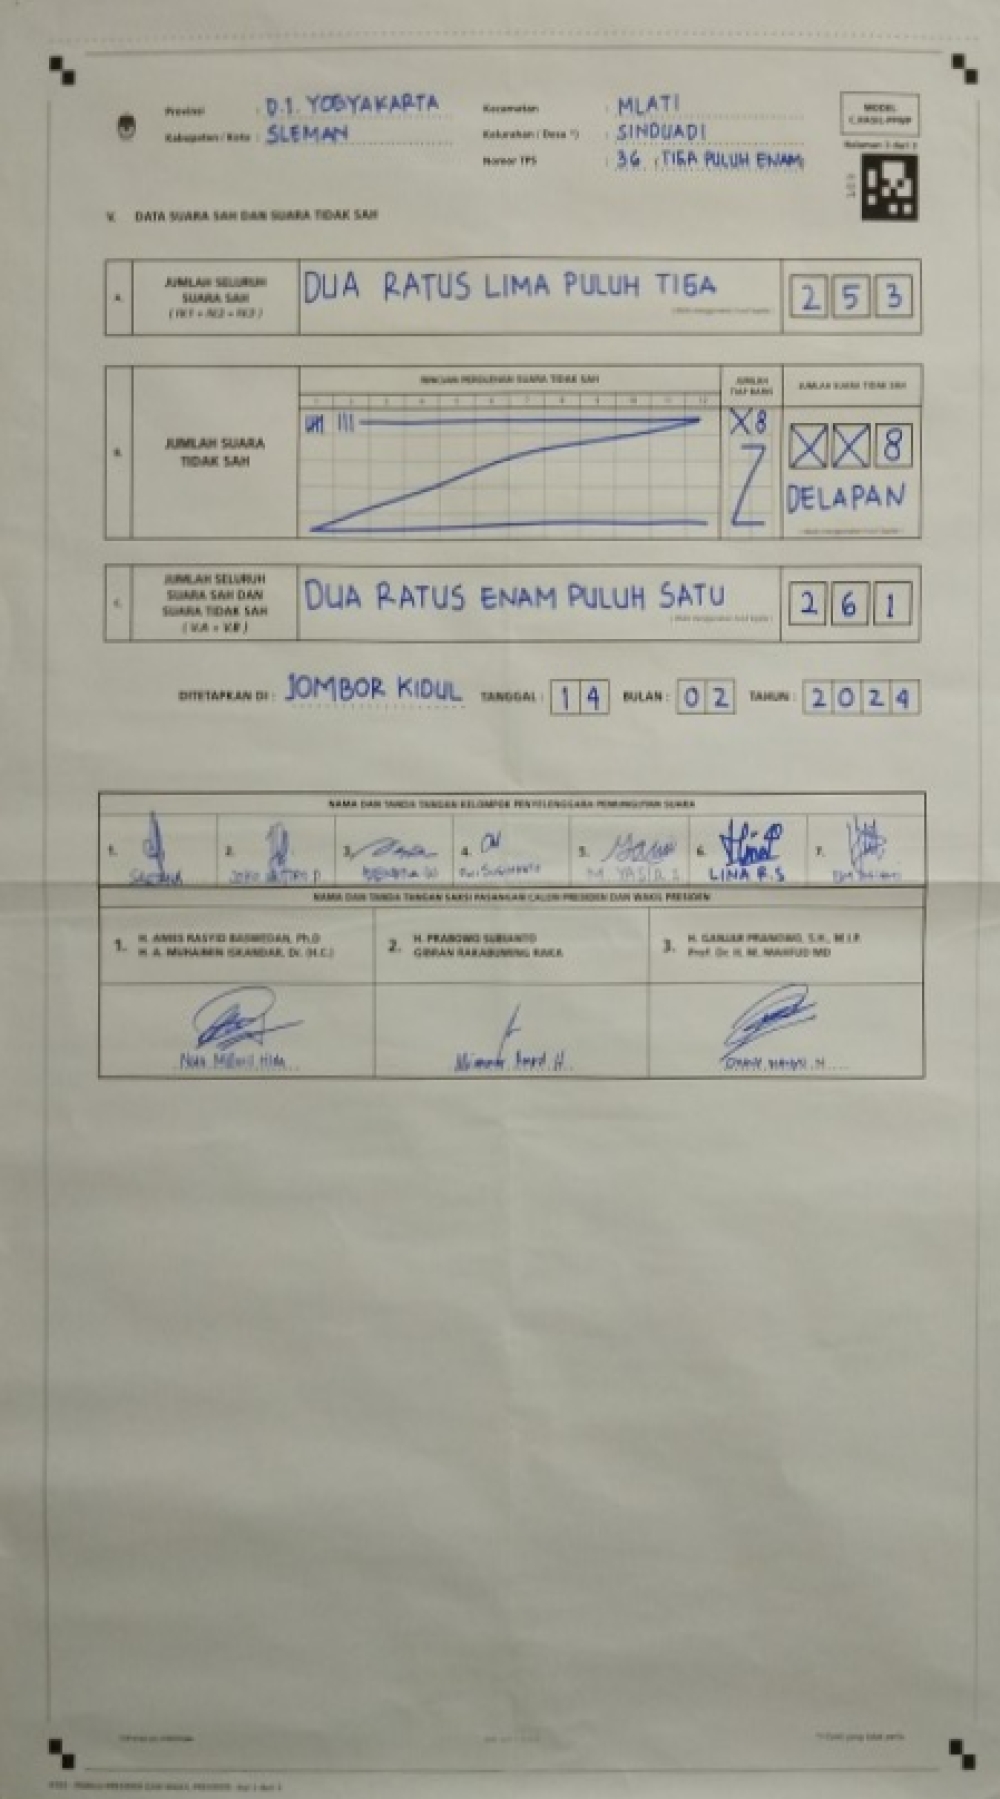 Provinsi : D.I. YOGYAKARTA
Kabupaten / Kota : SLEMAN
Kecamatan : MLATI
Kelurahan / Desa *) : SINDUADI
Nomor TPS : 36 (TIGA PULUH ENAM
MODEL
C.HASIL-PPWP
Halaman 3 dari 3
V. DATA SUARA SAH DAN SUARA TIDAK SAH
A. JUMLAH SELURUH
SUARA SAH
DUA RATUS LIMA PULUH TIGA
2 5 3
B. JUMLAH SUARA
TIDAK SAH
RINCIAN PEROLEHAN SUARA TIDAK SAH
JUMLAH
TIAP BARIS
JUMLAH SUARA TIDAK SAH
1 2 3 4 5 6 7 8 9 10 11 12
X 8
X X 8
DELAPAN
C. JUMLAH SELURUH
SUARA SAH DAN
SUARA TIDAK SAH
( V.A + V.B )
DUA RATUS ENAM PULUH SATU
2 6 1
DITETAPKAN DI : JOMBOR KIDUL TANGGAL : 1 4 BULAN : 0 2 TAHUN : 2 0 2 4
NAMA DAN TANDA TANGAN KELOMPOK PENYELENGGARA PEMUNGUTAN SUARA
1. 2. 3. 4. 5. 6. 7.
M. YASIR
LINA R.S
NAMA DAN TANDA TANGAN SAKSI PASANGAN CALON PRESIDEN DAN WAKIL PRESIDEN
1. H. ANIES RASYID BASWEDAN, Ph.D
H. A. MUHAIMIN ISKANDAR, Dr. (H.C.)
2. H. PRABOWO SUBIANTO
GIBRAN RAKABUMING RAKA
3. H. GANJAR PRANOWO, S.H., M.I.P.
Prof. Dr. H. M. MAHFUD MD
*) Coret yang tidak perlu